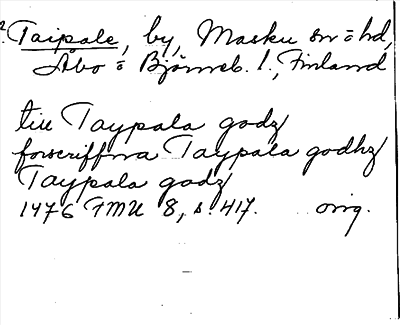 2. Taipale, by, Masku sn o hd,
Åbo o Björneb. l., Finland
till Taypala godz
forscriffna Taypala godhz
Taypala godz
1476 FMU 8, s. 417. orig.